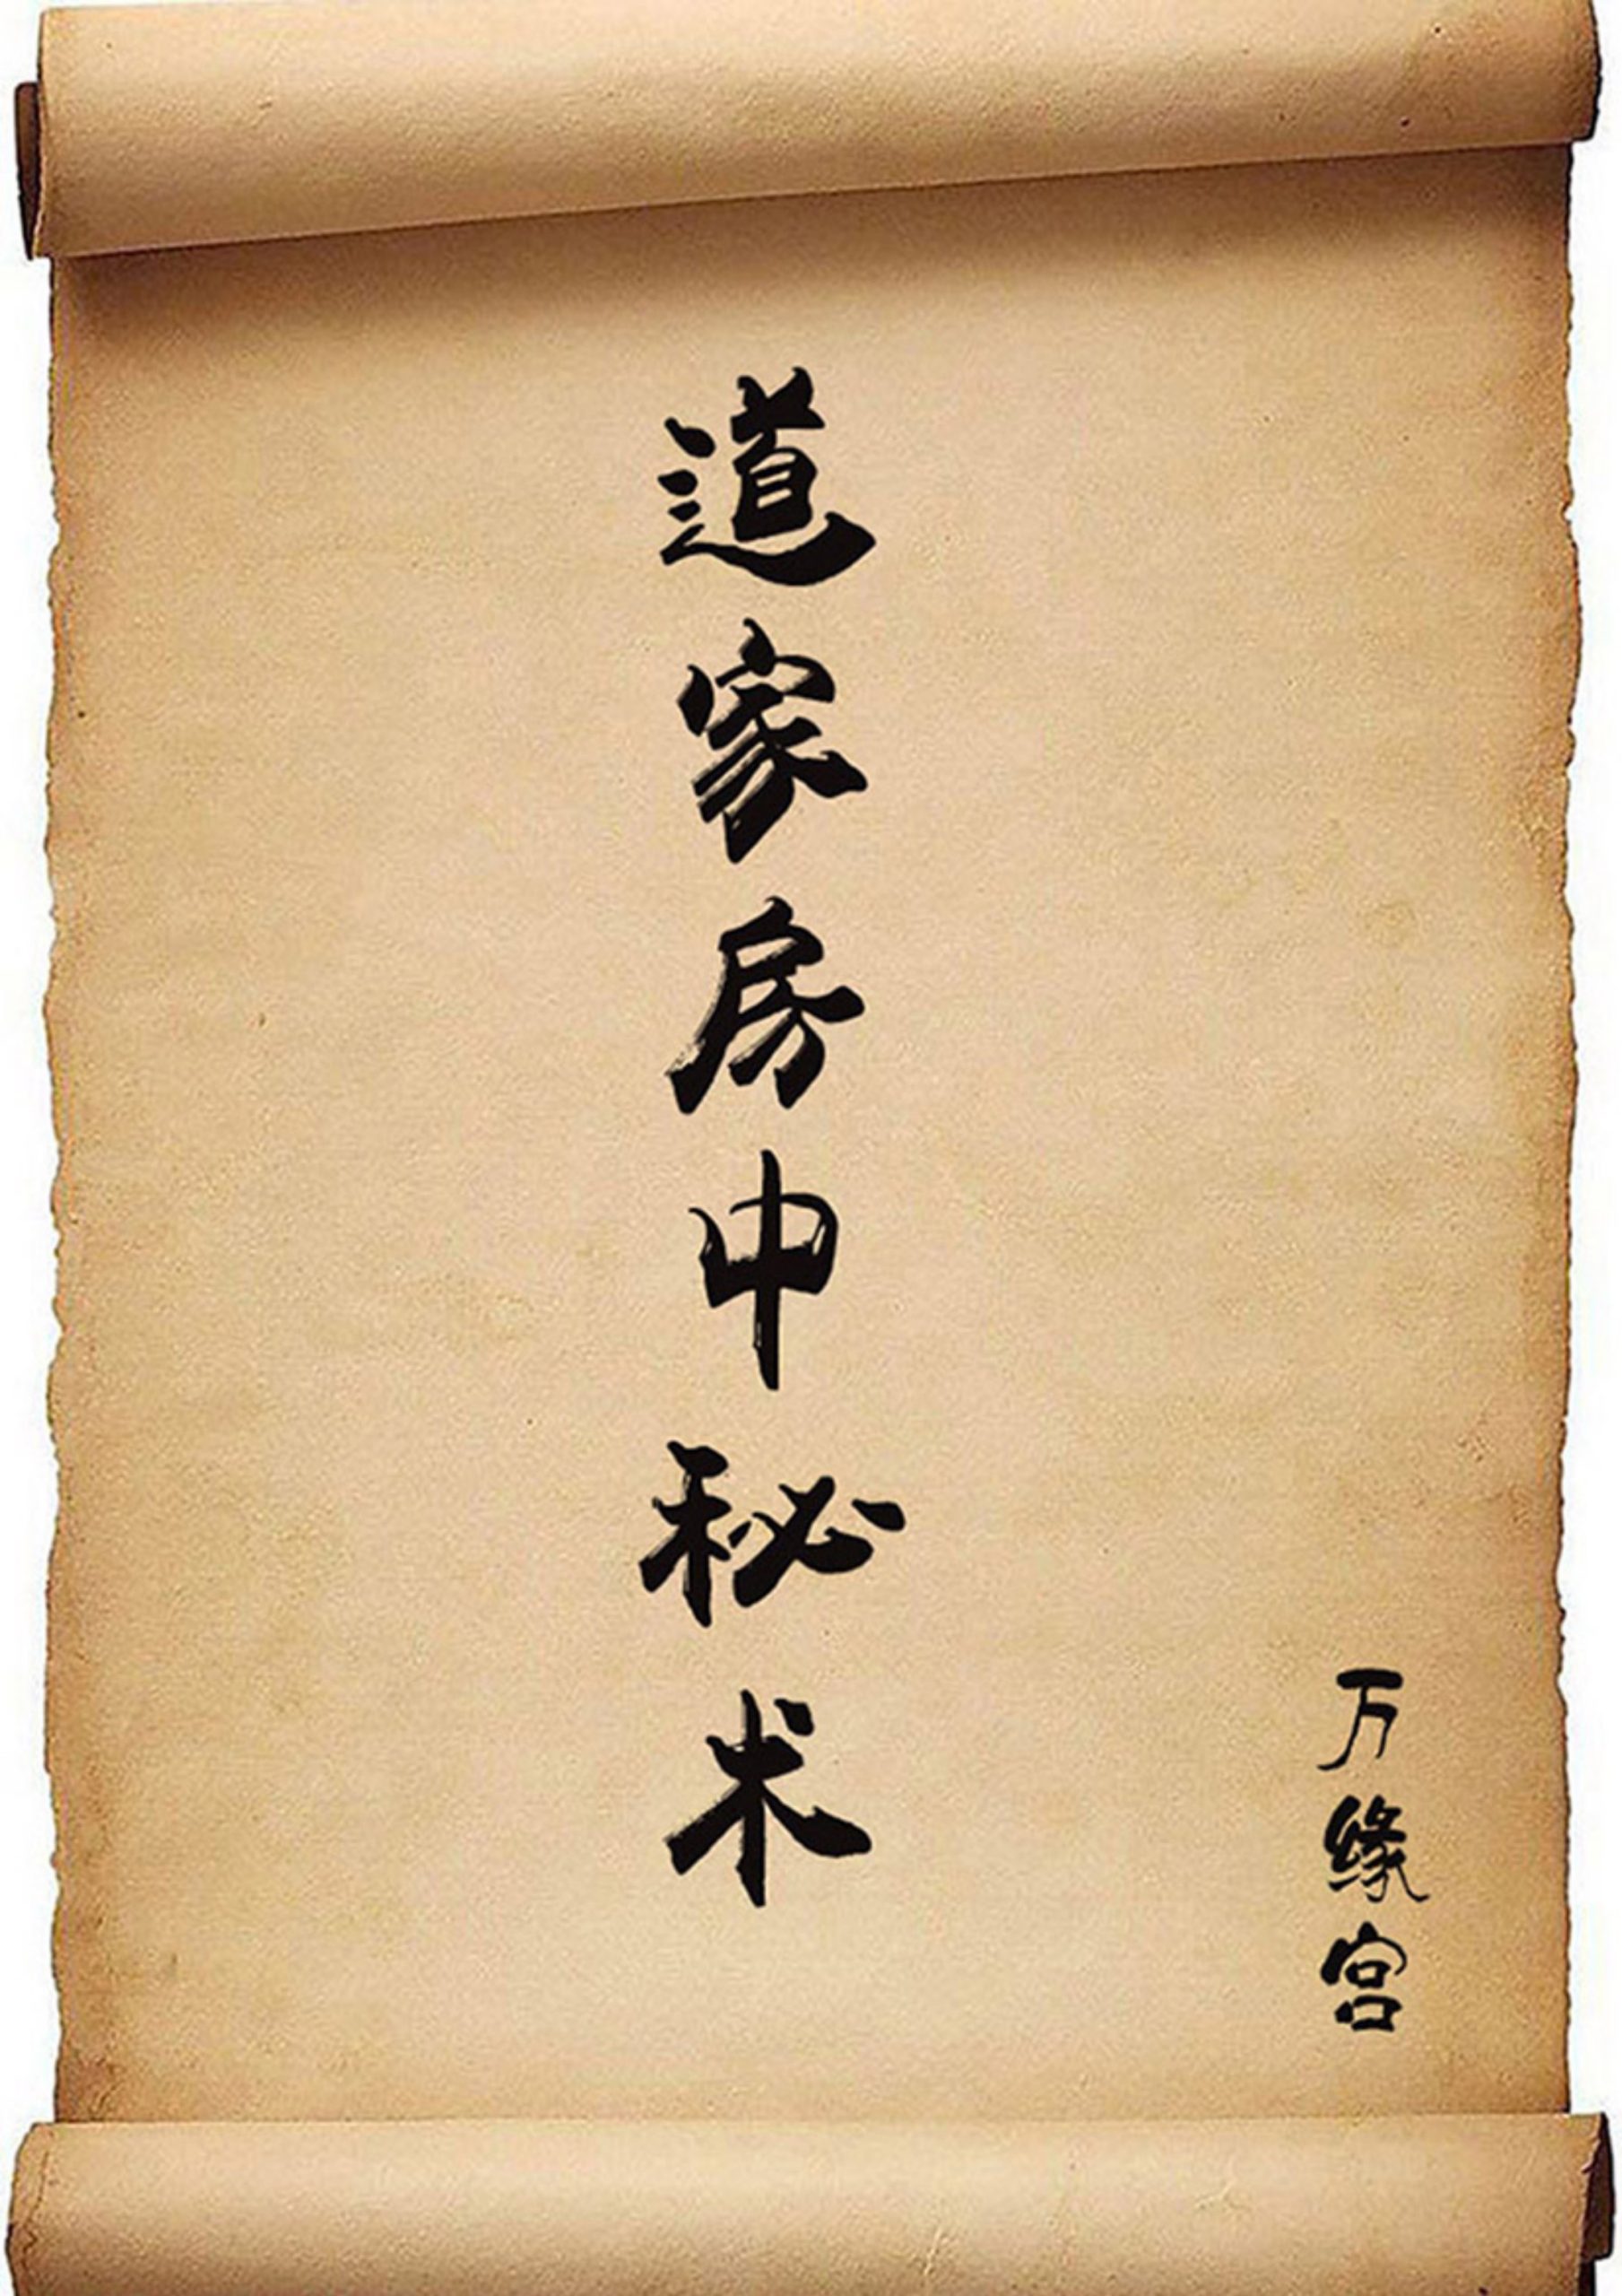 道家房中秘术
万缘宫